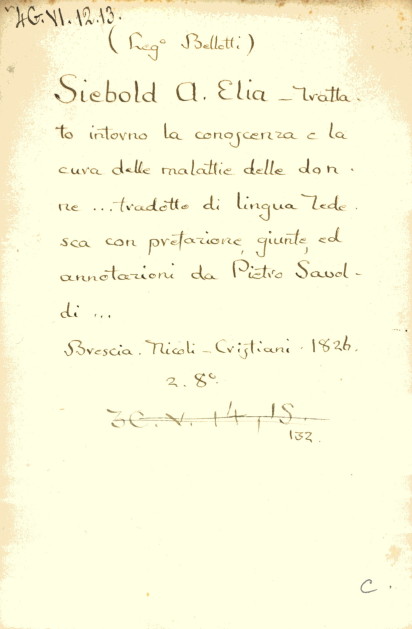 4G.VI.12.13.
(Leg.o Bellotti)
Siebold A. Elia - Tratta-
to intorno la conoscenza e la
cura delle malattie delle don-
ne ... tradotto di lingua Tede-
sca con prefazione, giunte, ed
annotazioni da Pietro Savol-
di ...
Brescia. Nicoli-Cristiani. 1826.
2. 8°.
3C.V.14,15.
132.
C.